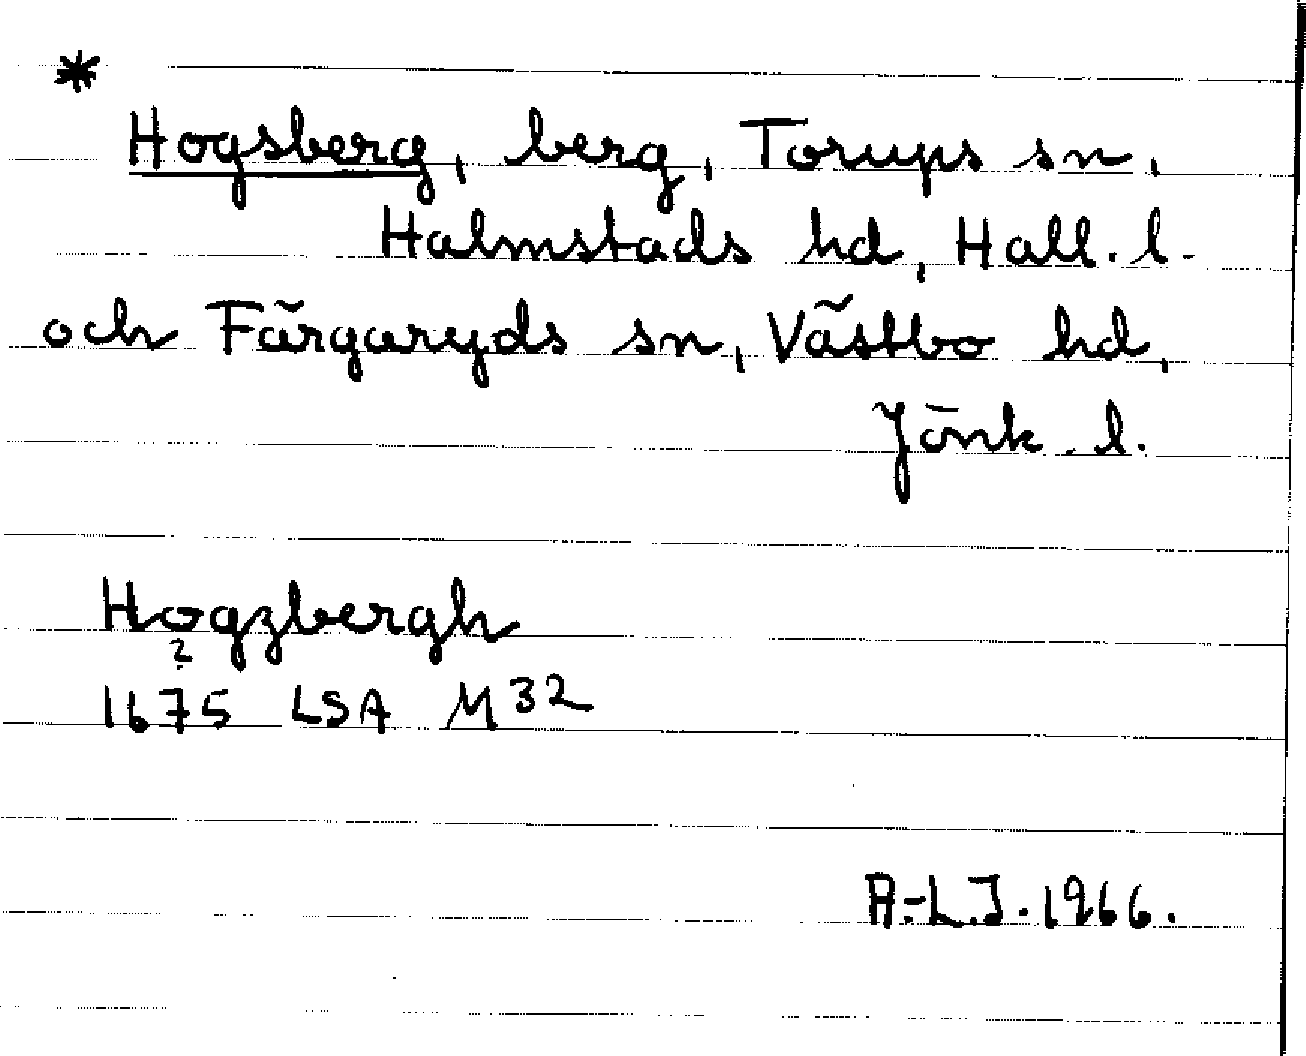 *
Hogsberg, berg, Torups sn,
Halmstads hd, Hall. l.
och Färgaryds sn, Västbo hd,
Jönk. l.
Hogzbergh
?
1675 LSA M32
A.-L.J. 1966.